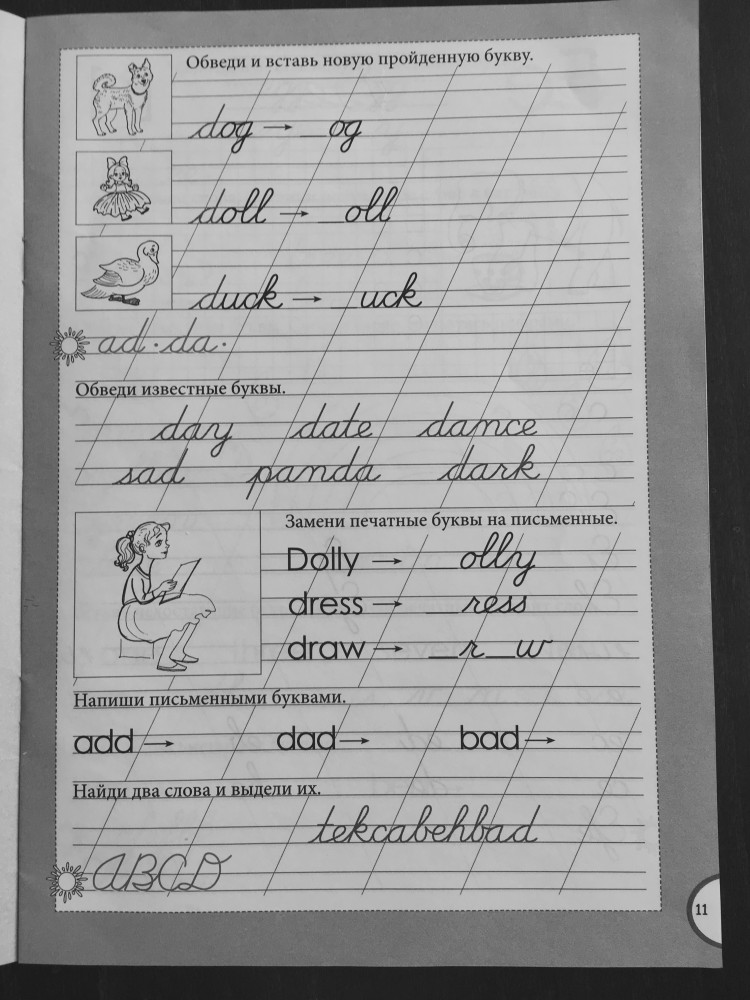 Обведи и вставь новую пройденную букву.
dog → _og
doll → _oll
duck → _uck
ad · da ·
Обведи известные буквы.
day date dance
sad panda dark
Замени печатные буквы на письменные.
Dolly → _olly
dress → _ress
draw → _r_w
Напиши письменными буквами.
add → dad → bad →
Найди два слова и выдели их.
tekcabehbad
ABCD
11